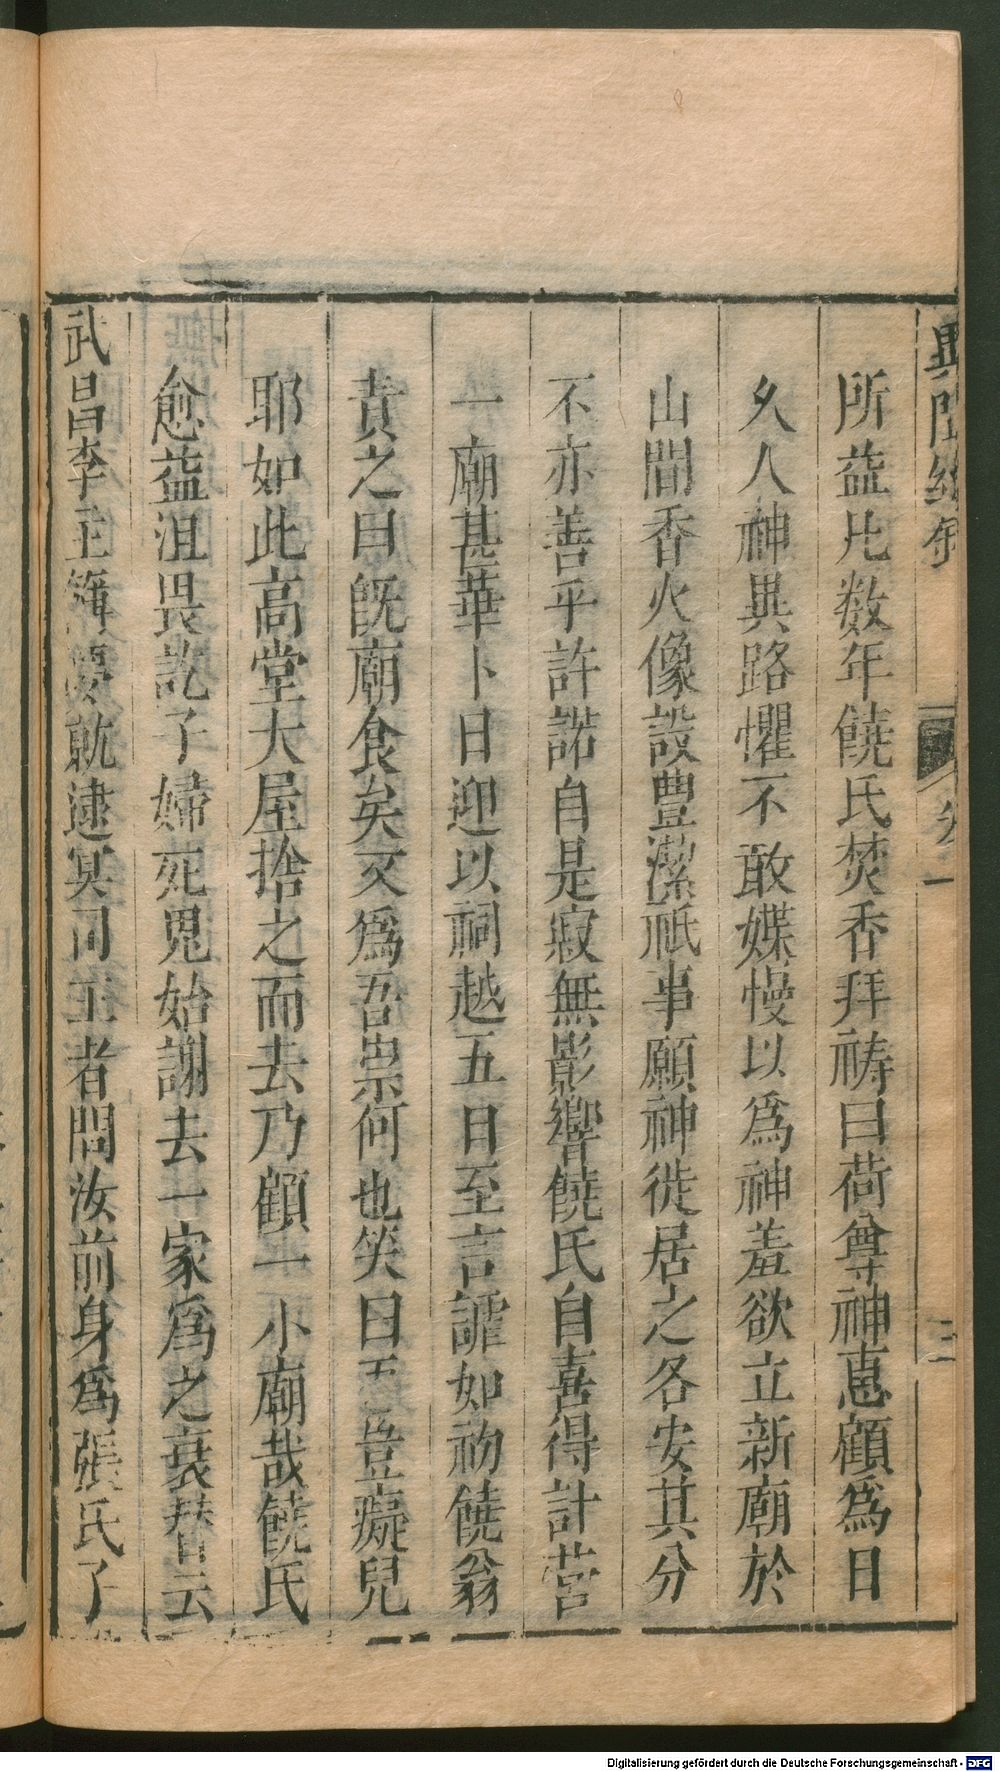 所益比数年饒氏焚香拜祷曰荷尊神惠顧爲日
久人神異路懼不敢媟慢以爲神羞欲立新廟於
山間香火像設豊潔祗事願神徙居之各安其分
不亦善乎許諾自是寂無影響饒氏自喜得計营
一廟甚華卜日迎以祠越五日至言謔如初饒翁
責之曰旣廟食矣又爲吾祟何也笑曰吾豈癡兒
耶如此高堂大屋捨之而去乃顧一小廟哉饒氏
愈益沮畏訖子婦死鬼始謝去一家爲之衰替云
武昌李主簿夢就逮冥司王者問汝前身爲張氏子
異聞総
卷一
三
Digitalisierung gefördert durch die Deutsche Forschungsgemeinschaft - DFG